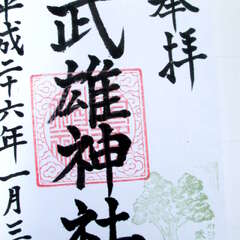 奉拝
武雄神社
平成二十六年一月三